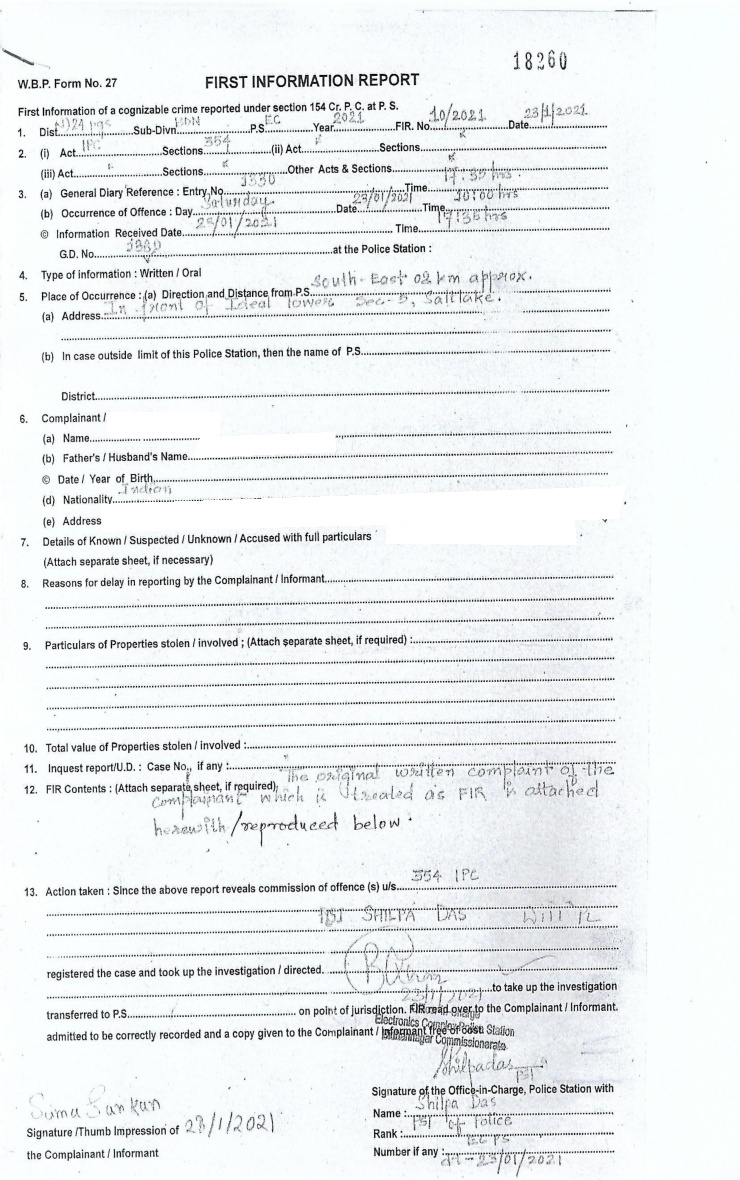 18260
W.B.P. Form No. 27 FIRST INFORMATION REPORT
First Information of a cognizable crime reported under section 154 Cr. P. C. at P. S.
1. Dist. N/24 Pgs Sub-Divn. BDN P.S. EC Year 2021 FIR. No. 10/2021 Date 23/1/2021
2. (i) Act IPC Sections 354 (ii) Act Sections
(iii) Act Sections Other Acts & Sections
3. (a) General Diary Reference : Entry No. 1330 Time 17:35 hrs
(b) Occurrence of Offence : Day Saturday Date 23/01/2021 Time 10:00 hrs
© Information Received Date 23/01/2021 Time 17:35 hrs
G.D. No. at the Police Station :
4. Type of information : Written / Oral
5. Place of Occurrence : (a) Direction and Distance from P.S. South-East 02 km approx.
(a) Address In front of Ideal towers Sec-5, Saltlake.
(b) In case outside limit of this Police Station, then the name of P.S.
District
6. Complainant /
(a) Name
(b) Father's / Husband's Name
© Date / Year of Birth
(d) Nationality Indian
(e) Address
7. Details of Known / Suspected / Unknown / Accused with full particulars
(Attach separate sheet, if necessary)
8. Reasons for delay in reporting by the Complainant / Informant
9. Particulars of Properties stolen / involved ; (Attach separate sheet, if required) :
10. Total value of Properties stolen / involved :
11. Inquest report/U.D. : Case No., if any :
12. FIR Contents : (Attach separate sheet, if required) The original written complaint of the
complainant which is treated as FIR is attached
herewith/reproduced below.
13. Action taken : Since the above report reveals commission of offence (s) u/s. 354 IPC
PSI SHILPA DAS Will
registered the case and took up the investigation / directed.
23/1/2021 to take up the investigation
transferred to P.S. on point of jurisdiction. FIR read over to the Complainant / Informant.
admitted to be correctly recorded and a copy given to the Complainant / Informant free of cost.
Electronics Complex Police Station
Bidhannagar Commissionerate
Shilpadas
PSI
Signature of the Office-in-Charge, Police Station with
Name : Shilpa Das
Rank : PSI of Police
Number if any : EC PS
dt - 23/01/2021
23/1/2021
Signature /Thumb Impression of
the Complainant / Informant